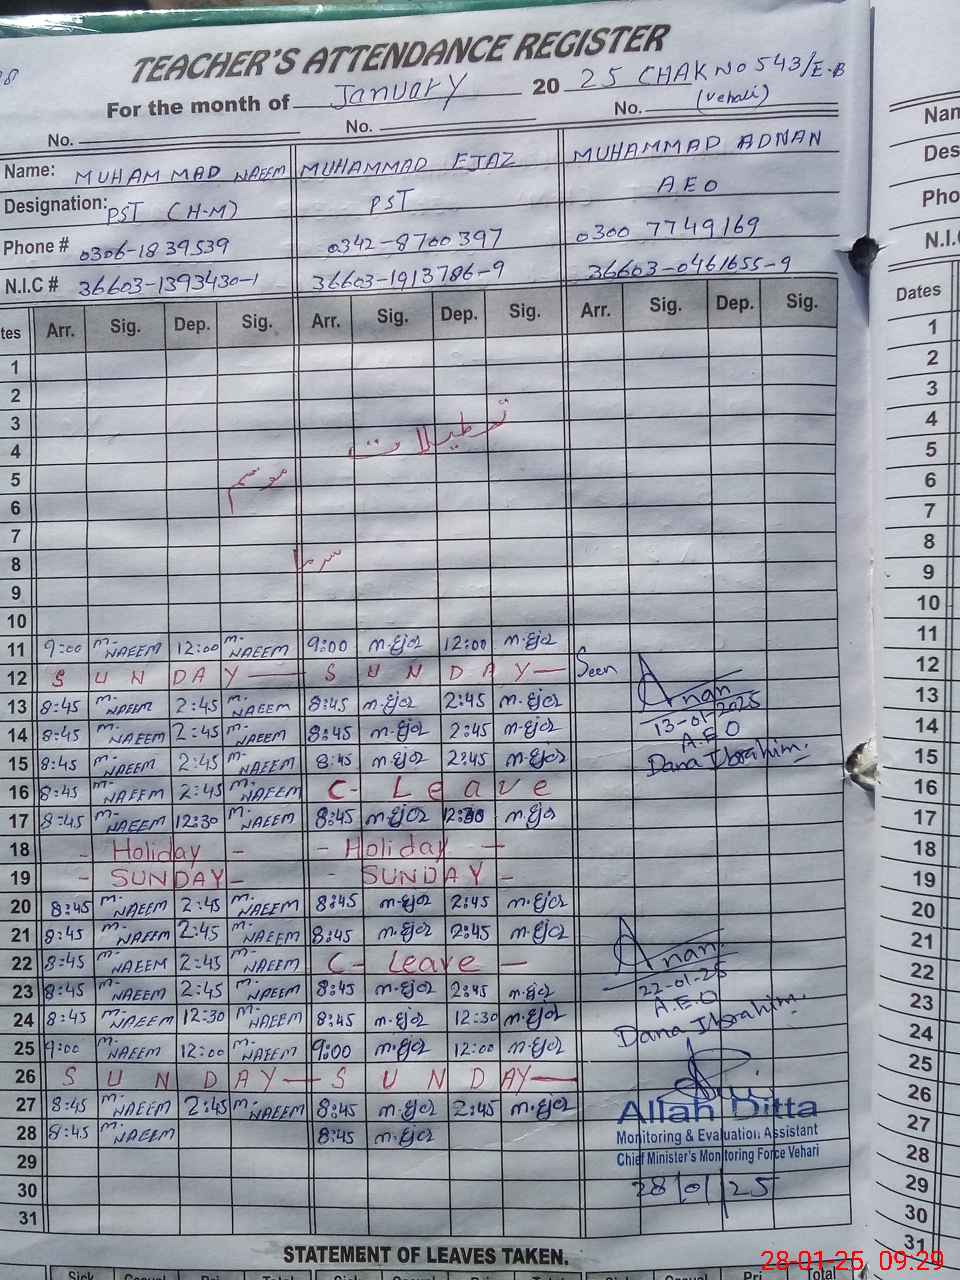 TEACHER'S ATTENDANCE REGISTER
For the month of January 20 25 CHAK NO 543/E-B
(Vehali)
No. No. No.
Name: MUHAMMAD NAEEM MUHAMMAD EJAZ MUHAMMAD ADNAN
Designation: PST (H-M) PST AEO
Phone # 0306-1839539 0342-8700397 0300 7749169
N.I.C # 36603-1393430-1 36603-1913786-9 36603-0461655-9
tes Arr. Sig. Dep. Sig. Arr. Sig. Dep. Sig. Arr. Sig. Dep. Sig.
1
2
3 تعطیلات
4
5 موسم
6
7
8 سرما
9
10
11 9:00 M. NAEEM 12:00 M. NAEEM 9:00 M.Ejaz 12:00 M.Ejaz
12 S U N DAY S U N DAY Seen Anan
13 8:45 M. NAEEM 2:45 M. NAEEM 8:45 M.Ejaz 2:45 M.Ejaz 13-01-2025
14 8:45 M. NAEEM 2:45 M. NAEEM 8:45 M.Ejaz 2:45 M.Ejaz A.E.O
15 8:45 M. NAEEM 2:45 M. NAEEM 8:45 M.Ejaz 2:45 M.Ejaz Dana Ibrahim.
16 8:45 M. NAEEM 2:45 M. NAEEM C- Leave
17 8:45 M. NAEEM 12:30 M. NAEEM 8:45 M.Ejaz 12:30 M.Ejaz
18 - Holiday - - Holiday -
19 - SUNDAY - - SUNDAY -
20 8:45 M. NAEEM 2:45 M. NAEEM 8:45 M.Ejaz 2:45 M.Ejaz
21 8:45 M. NAEEM 2:45 M. NAEEM 8:45 M.Ejaz 2:45 M.Ejaz Anan
22 8:45 M. NAEEM 2:45 M. NAEEM C- Leave - 22-01-25
23 8:45 M. NAEEM 2:45 M. NAEEM 8:45 M.Ejaz 2:45 M.Ejaz A.E.O
24 8:45 M. NAEEM 12:30 M. NAEEM 8:45 M.Ejaz 12:30 M.Ejaz Dana Ibrahim.
25 9:00 M. NAEEM 12:00 M. NAEEM 9:00 M.Ejaz 12:00 M.Ejaz
26 S U N DAY S U N DAY
27 8:45 M. NAEEM 2:45 M. NAEEM 8:45 M.Ejaz 2:45 M.Ejaz Allah Ditta
28 8:45 M. NAEEM 8:45 M.Ejaz Monitoring & Evaluation Assistant
Chief Minister's Monitoring Force Vehari
29
30 28/01/25
31
STATEMENT OF LEAVES TAKEN.
Sick Casual Total Sick Casual Total Sick Casual Pri Total
Nam
Des
Pho
N.I.C
Dates
1
2
3
4
5
6
7
8
9
10
11
12
13
14
15
16
17
18
19
20
21
22
23
24
25
26
27
28
29
30
31
28-01-25 09:29